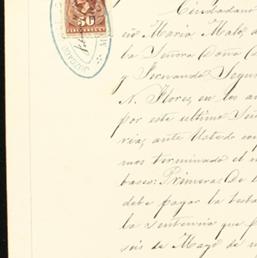 50
Ciudadano
cio María Malo, a
la Señora Doña
y Fernando Segu
N. Flores, en los au
por este último Seño
ría, ante Usted com
mos terminado el
bases: Primera: De
debe pagar la testa
la sentencia que
seis de Mayo de